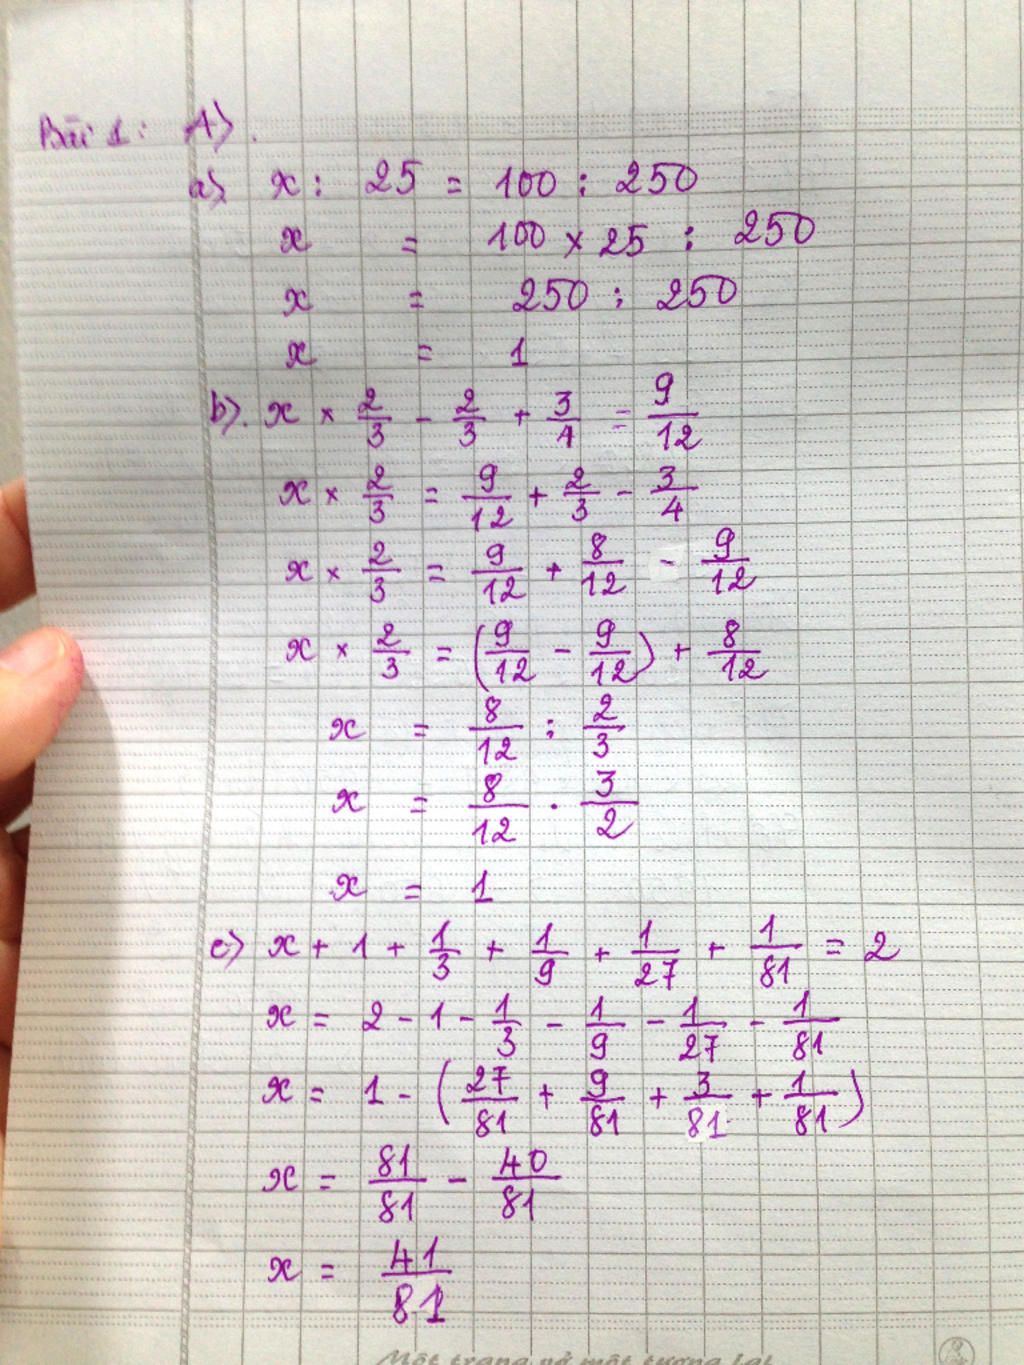 Bài 1: A).
a) x : 25 = 100 : 250
x = 100 × 25 : 250
x = 250 : 250
x = 1
b). x × 2/3 - 2/3 + 3/4 = 9/12
x × 2/3 = 9/12 + 2/3 - 3/4
x × 2/3 = 9/12 + 8/12 - 9/12
x × 2/3 = (9/12 - 9/12) + 8/12
x = 8/12 : 2/3
x = 8/12 . 3/2
x = 1
c) x + 1 + 1/3 + 1/9 + 1/27 + 1/81 = 2
x = 2 - 1 - 1/3 - 1/9 - 1/27 - 1/81
x = 1 - (27/81 + 9/81 + 3/81 + 1/81)
x = 81/81 - 40/81
x = 41/81
Một trang vở một tương lai